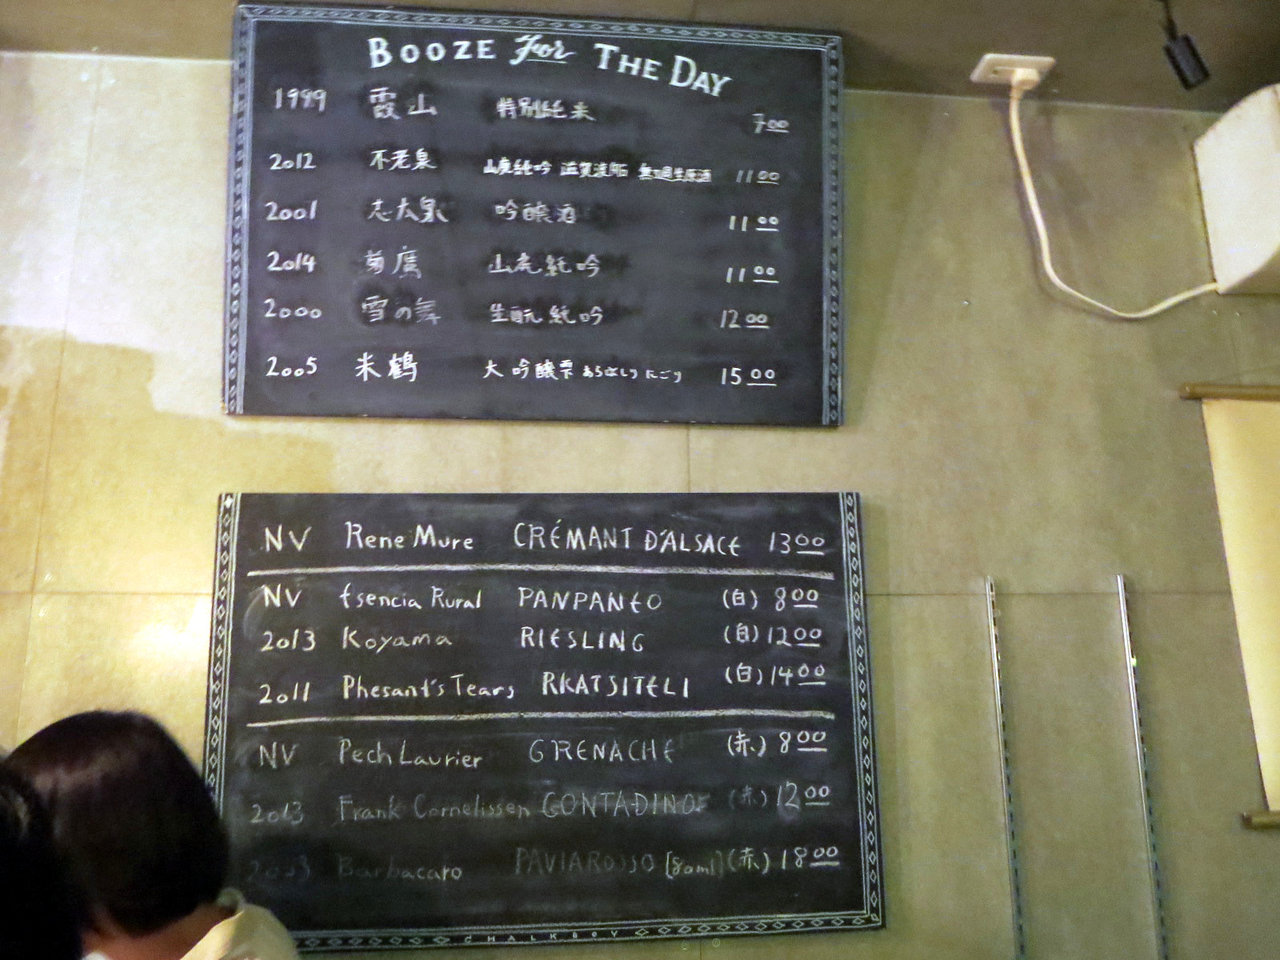 BOOZE For THE DAY
1999 霞山 特別純米 7 00
2012 不老泉 山廃純吟 滋賀渡船 無濾過生原酒 11 00
2001 志太泉 吟醸酒 11 00
2014 菊鷹 山廃純吟 11 00
2000 雪の舞 生酛純吟 12 00
2005 米鶴 大吟醸雫 あらばしり にごり 15 00
NV Rene Mure CRÉMANT D'ALSACE 13 00
NV Esencia Rural PANPANEO (白) 8 00
2013 Koyama RIESLING (白) 12 00
2011 Phesant's Tears RKATSITELI (白) 14 00
NV Pech Laurier GRENACHE (赤) 8 00
2013 Frank Cornelissen CONTADINO (赤) 12 00
2003 Barbacaro PAVIAROSSO [80ml] (赤) 18 00
CHALKBOY